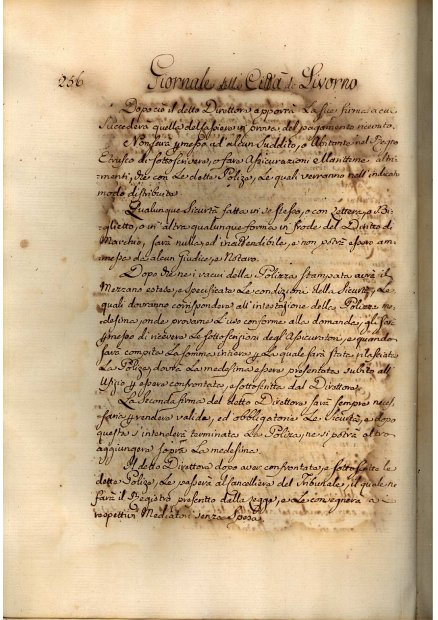 256 Giornale della Città di Livorno
Dopo ciò il detto Direttore apporrà la sua firma, a cui
succederà quella del Cassiere in prova del pagamento ricevuto.
Non sarà permesso ad alcun Suddito, o Abitante nel
di sottoscrivere, o fare Assicurazioni Marittime altri-
menti, che con le dette Polize, le quali verranno nell'indicato
modo distribuite.
Qualunque Sicurtà fatta in se stesso, o con Lettera, o Bi-
glietto, o in altra qualunque forma in frode del Diritto di
Marchio, sarà nulla ed inattendibile, e non potrà essere am-
messa da alcun Giudice, o Notaro.
Dopo che ne i vacui della Polizza stampata avrà il
Mezzano estese, e specificate le condizioni della Sicurtà, le
quali dovranno corrispondere all'intestazione della Polizza me-
desima, onde provarne l'uso conforme alla domanda, gli sarà
permesso di ricevere le sottoscrizioni degli Assicuratori, e quando
sarà compita la somma intiera per la quale sarà stata rilasciata
la Poliza, dovrà la medesima essere presentata subito all'
Ufizio per essere confrontata, e sottoscritta dal Direttore.
La seconda firma del detto Direttore sarà sempre neces-
saria per rendere valida, ed obbligatoria la Sicurtà, e dopo
questa s'intenderà terminata la Poliza, ne si potrà altro
aggiungere sopra la medesima.
Il detto Direttore dopo aver confrontate, e sottoscritte le
dette Polize, le passerà al Cancelliere del Tribunale, il quale ne
farà il Registro prescritto dalla Legge, e le consegnerà a i
respettivi Mediatori senza spesa.